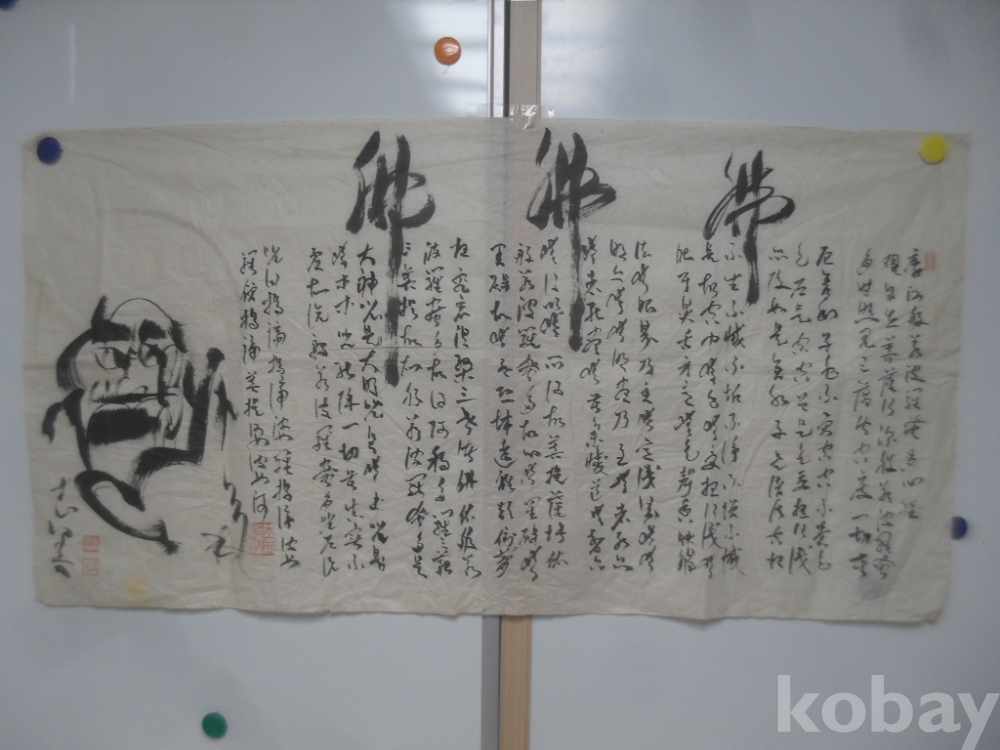 佛
佛
佛
摩訶般若波羅蜜多心經
觀自在菩薩行深般若波羅蜜
多時照見五蘊皆空度一切苦
厄舍利子色不異空空不異色
色即是空空即是色受想行識
亦復如是舍利子是諸法空相
不生不滅不垢不淨不增不減
是故空中無色無受想行識無
眼耳鼻舌身意無色聲香味觸
法無眼界乃至無意識界無無
明亦無無明盡乃至無老死亦
無老死盡無苦集滅道無智亦
無得以無所得故菩提薩埵依
般若波羅蜜多故心無罣碍無
罣碍故無有恐怖遠離顛倒夢
想究竟涅槃三世諸佛依般若
波羅蜜多故得阿耨多羅三藐
三菩提故知般若波羅蜜多是
大神呪是大明呪是無上呪是
無等等呪能除一切苦真實不
虛故說般若波羅蜜多呪即說
呪曰揭諦揭諦波羅揭諦波
羅僧揭諦菩提娑婆訶
kobay